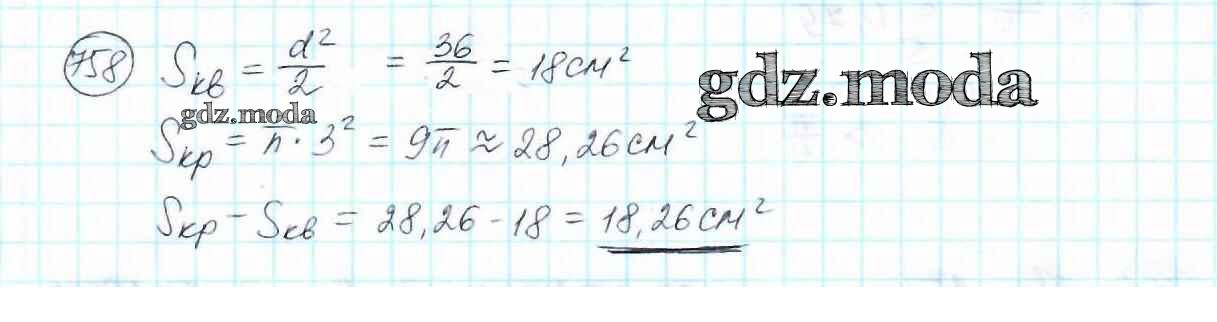 758 Sкв = d²/2 = 36/2 = 18 см²
gdz.moda
gdz.moda
Sкр = π · 3² = 9π ≈ 28,26 см²
Sкр - Sкв = 28,26 - 18 = 18,26 см²